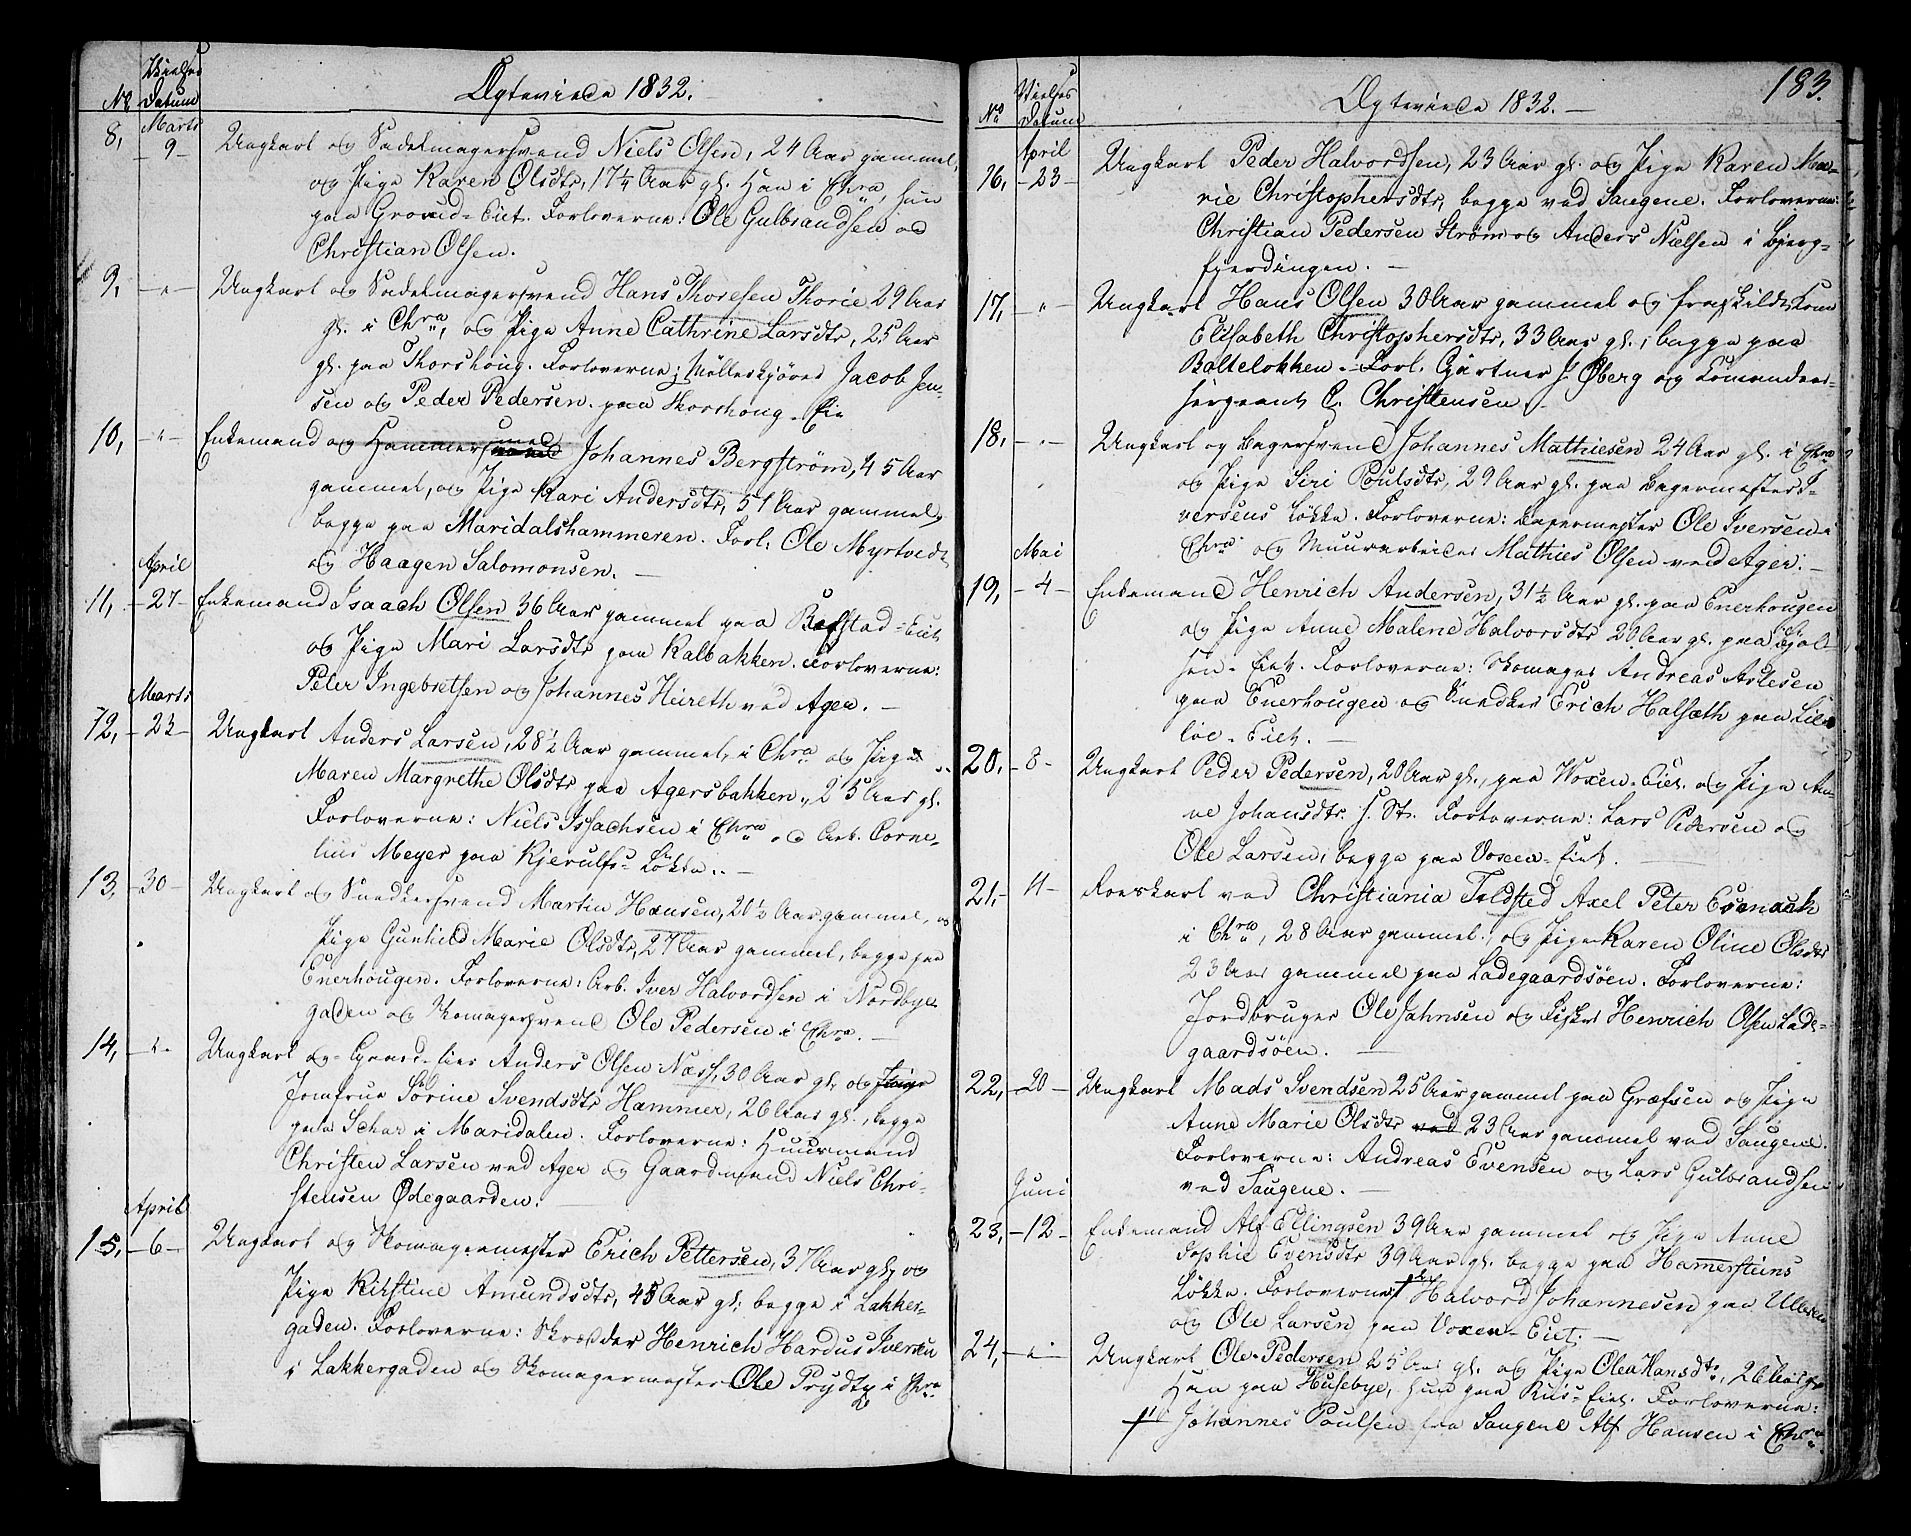 Vielses
No Datum
Ægteviede 1832.
Marts
8, -9- Ungkarl og Sadelmagersvend Niels Olsen, 24 Aar gammel,
og Pige Karen Olsdtr, 17¼ Aar gl. Han i Chra, hun
paa Grønd-Eiet. Forloverne: Ole Gulbrandsen og
Christian Olsen.
9, -"- Ungkarl og Sadelmagersvend Hans Thoresen Thorie 29 Aar
gl. i Chra, og Pige Anne Cathrine Larsdtr, 25 Aar
gl. paa Thorshoug. Forloverne: Møllerkjører Jacob Jen-
sen og Peder Pedersen paa Thorshoug-Eie
10, -"- Enkemand og Hammersmed Johannes Bergstrøm, 45 Aar
gammel, og Pige Kari Andersdtr, 51 Aar gammel,
begge paa Maridalshammeren. Forl: Ole Myrtvedt
og Haagen Salomonsen. -
April
11, -27- Enkemand Isaach Olsen 36 Aar gammel paa Refstad-Eiet
og Pige Mari Larsdtr paa Kalbakken. Forloverne:
Peter Ingebretsen og Johannes Heireth ved Ager. -
Marts
12, -23- Ungkarl Anders Larsen, 28½ Aar gammel, i Chra og Pige
Maren Margrethe Olsdtr paa Agersbakken, 25 Aar gl.
Forloverne: Niels Issachsen i Chra og Arb. Corne-
lius Meyer paa Kjerulfs-Løkke. -
13, -30- Ungkarl og Snedkersvend Martin Hansen, 20½ Aar gammel, og
Pige Gunhild Marie Olsdtr, 27 Aar gammel, begge paa
Enerhougen. Forloverne: Arb. Iver Halvordsen i Nordbye-
gaden og Skomagersvend Ole Pedersen i Chra. -
14, -"- Ungkarl og Gaard-Eier Anders Olsen Næss, 30 Aar gl. og Pige
Jomfrue Sørine Svendsdtr Hammer, 26 Aar gl., begge
paa Schar i Maridalen. Forloverne: Huusmand
Christen Larsen ved Ager og Gaardmand Niels Chri-
stensen Ødegaarden. -
April
15, -6- Ungkarl og Skomagermester Erich Pettersen, 37 Aar gl, og
Pige Kirstine Amundsdtr, 45 Aar gl: begge i Lakker-
gaden. Forloverne: Skrædder Henrich Hardus Iversen
i Lakkergaden og Skomagermester Ole Prydtz i Chra
183.
Vielses
No Datum
Ægteviede 1832. -
April
16, -23- Ungkarl Peder Halvordsen, 23 Aar gl. og Pige Karen Ma-
rie Christophersdtr, begge ved Saugene. Forloverne:
Christian Pedersen Strøm og Anders Nielsen i Bjerg-
fjerdingen. -
17, -"- Ungkarl Hans Olsen 30 Aar gammel og fraskildt Kone
Elisabeth Christophersdtr, 33 Aar gl., begge paa
Bolteløkken. Forl. Gartner J. Øberg og Comandeer-
sergeant C. Christensen. -
18, -"- Ungkarl og Bagersvend Johannes Mathiesen 24 Aar gl. i Chra
og Pige Siri Poulsdtr, 29 Aar gl. paa Bagermester I-
versens Løkke. Forloverne: Bagermester Ole Iversen i
Chra og Muurarbeider Mathies Olsen ved Ager. -
Mai
19, -4- Enkemand Henrich Andersen, 31½ Aar gl. paa Enerhougen
og Pige Anne Malene Halvorsdtr 20 Aar gl. paa Bjøl-
sen-Eiet. Forloverne: Skomager Andreas Aslesen
paa Enerhougen og Snedker Erich Halsæth paa Lille
løe-Eiet. -
20, -8- Ungkarl Peder Pedersen, 20 Aar gl., paa Voxen-Eiet. og Pige An-
ne Johansdtr. s. St. Forloverne: Lars Pedersen og
Ole Larsen, begge paa Voxen-Eiet. -
21, -11- Roeskarl ved Christiania Toldsted Axel Peter
i Chra, 28 Aar gammel, og Pige Karen Oline Olsdtr
23 Aar gammel paa Ladegaardsøen. Forloverne:
Jordbruger Ole Jahnsen og Fisker Henrich Olsen Lade-
gaardsøen. -
22, -20- Ungkarl Mads Svendsen 25 Aar gammel paa Græfsen og Pige
Anne Marie Olsdtr ved 23 Aar gammel ved Saugene.
Forloverne: Andreas Evensen og Lars Gulbrandsen
ved Saugene. -
Juni
23, -12- Enkemand Alf Ellingsen 39 Aar gammel og Pige Anne
Sophie Evensdtr 39 Aar gl. begge paa Hamersteins
Løkke. Forloverne: Halvord Johannesen paa Ulleren
og Ole Larsen paa Voxen-Eiet. -
24, -"- Ungkarl Ole Pedersen 25 Aar gl. og Pige Olea Hansdtr, 26 Aar gl
Han paa Husebye, hun paa Riis-Eiet. Forloverne:
Johannes Poulsen fra Saugene Alf Hansen i Chra.